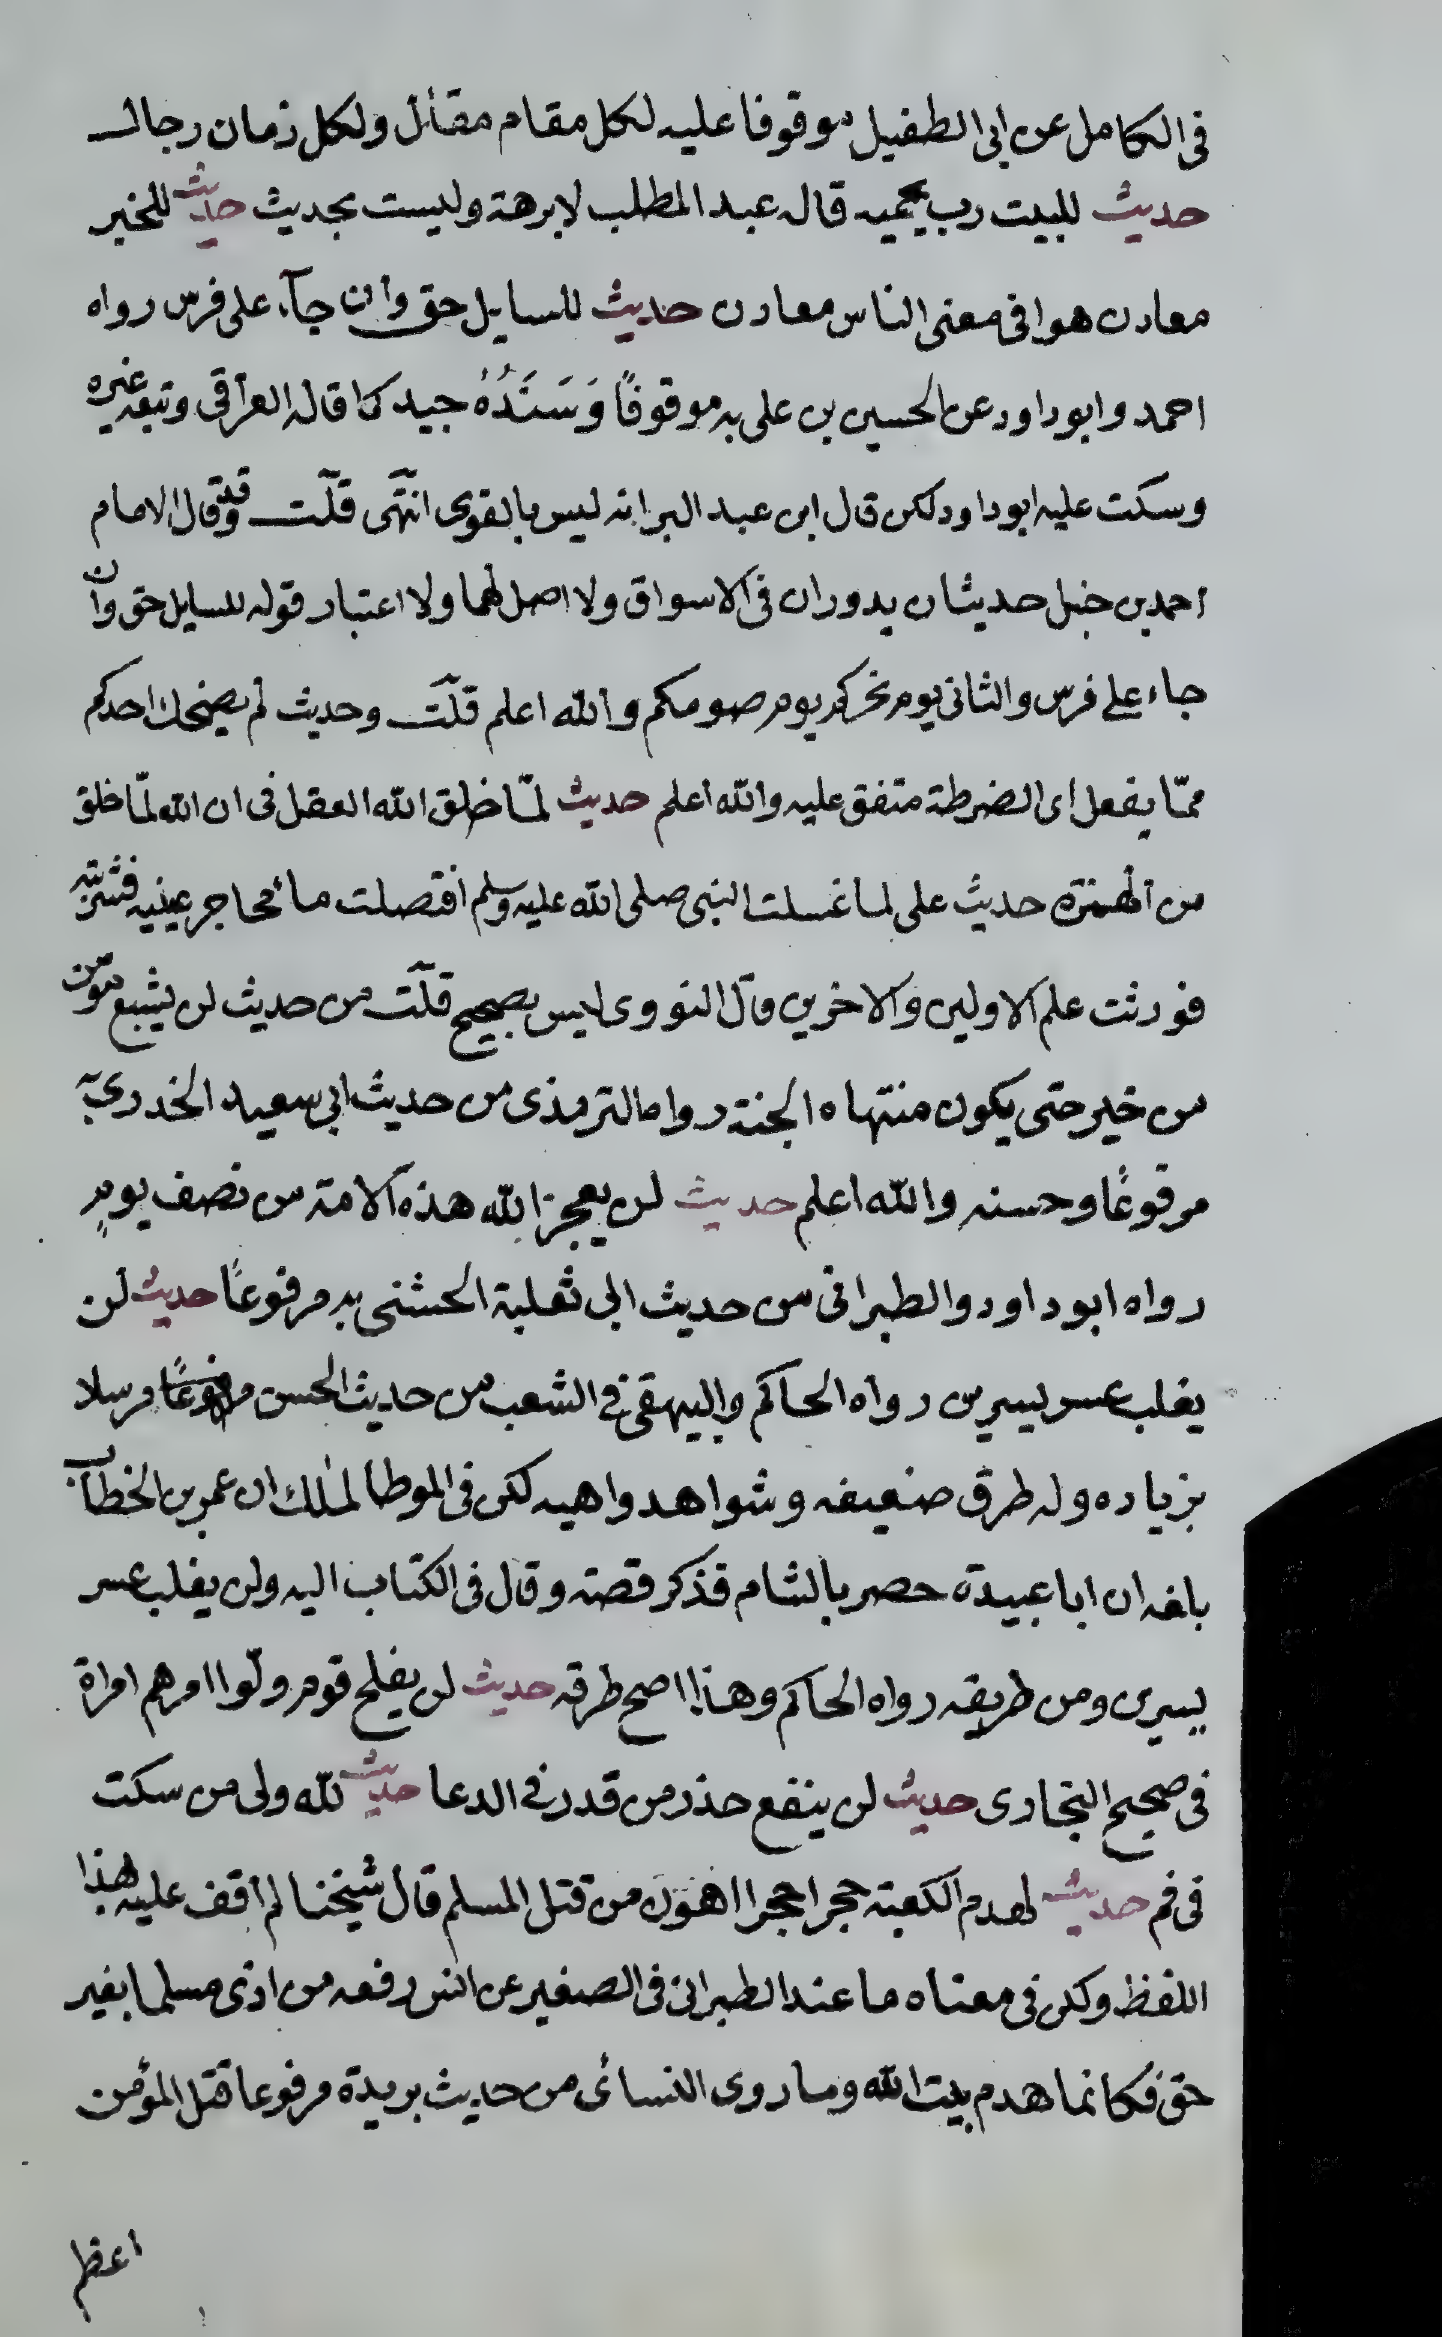 فى الكامل عن ابى الطفيل موقوفا عليه لكل مقام مقال ولكل زمان رجال
حديث للبيت رب يحميه قاله عبد المطلب لابرهة وليست بحديث حديث للخير
معادن هو افى معنى الناس معادن حديث للسايل حق وان جآء على فرس رواه
احمد وابو داود عن الحسين بن على به موقوفًا وَسَنَدُهُ جيد كما قاله العرآقى وتبعه غيره
وسكت عليه ابو داود لكن قال ابن عبد البر انه ليس بالقوى انتهى قلت وقد قال الامام
احمد بن حنبل حديثان يدوران فى الاسواق ولا اصل لهما ولا اعتبار قوله للسايل حق وان
جاء على فرس والثانى يوم نحركم يوم صومكم والله اعلم قلت وحديث لم يضحك احدكم
ممّا يفعل اى الضرطة متفق عليه والله اعلم حديث لمّا خلق الله العقل فى ان الله لمّا خلق
من الهمزة حديث على لما غسلت النبى صلى الله عليه وسلم اقتصلت ماء محاجر عينيه فشربته
فورثت علم الاولين والاخرين قال النووى ليس بصحيح قلت من حديث لن يشبع مؤمن
من خير حتى يكون منتهاه الجنة رواه الترمذى من حديث ابى سعيد الخدرى
مرفوعًا وحسنه والله اعلم حديث لن يعجز الله هذه الامة من نصف يوم
رواه ابو داود والطبرانى من حديث ابى ثعلبة الخشنى به مرفوعًا حديث لن
يغلب عسر يسرين رواه الحاكم والبيهقى فى الشعب من حديث الحسن مرسلا
بزياده وله طرق ضعيفه وشواهد واهيه لكن فى الموطا لملك ان عمر بن الخطاب
بلغه ان ابا عبيدة حصر بالشام فذكر قصته وقال فى الكتاب اليه ولن يغلب عسر
يسرين ومن طريقه رواه الحاكم وهذا اصح طرقه حديث لن يفلح قوم ولّوا امرهم امراة
فى صحيح البخارى حديث لن ينفع حذر من قدر فى الدعا حديث لله ولى من سكت
فى فم حديث لهدم الكعبة حجرا حجرا اهون من قتل المسلم قال شيخنا لم اقف عليه بهذا
اللفظ ولكن فى معناه ما عند الطبرانى فى الصغير عن انس رفعه من اذى مسلما بغير
حق فكانما هدم بيت الله وما روى النسائى من حديث بريدة مرفوعا قتل المؤمن
اعظم